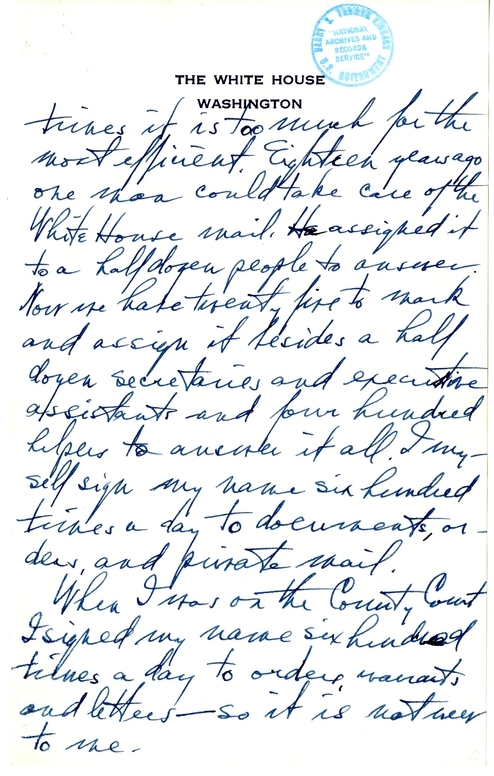 HARRY S. TRUMAN LIBRARY
"NATIONAL
ARCHIVES AND
RECORDS
SERVICE"
U.S. GOVERNMENT
THE WHITE HOUSE
WASHINGTON
times it is too much for the
most efficient. Eighteen years ago
one man could take care of the
White House mail. He assigned it
to a half dozen people to answer.
Now we have twenty five to mark
and assign it besides a half
dozen secretaries and executive
assistants and four hundred
helpers to answer it all. I my-
self sign my name six hundred
times a day to documents, or-
ders, and private mail.
When I was on the County Court
I signed my name six hundred
times a day to orders, warrants
and letters—so it is not new
to me.